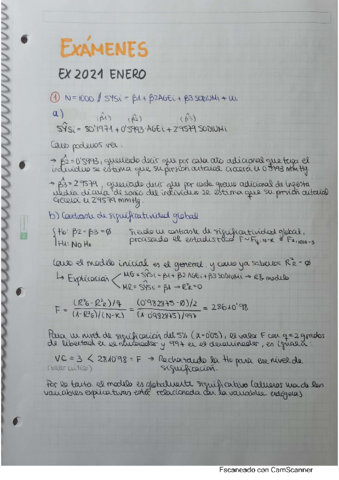 EXÁMENES
EX 2021 ENERO
① N=1000 // SYSi = β1 + β2AGEi + β3SODIUMi + ui
a) (β̂1) (β̂2) (β̂3)
SŶSi = 80'1971 + 0'5993·AGEi + 2'9579 SODIUMi
Como podemos ver:
→ β̂2 = 0'5993, queriendo decir que por cada año adicional que tenga el
individuo se estima que su presión arterial crecerá 0'5993 mmHg
→ β̂3 = 2'9579, queriendo decir que por cada gramo adicional de ingesta
media diaria de sodio del individuo se estima que su presión arterial
crecerá 2'9579 mmHg
b) Contraste de significatividad global
H0: β2 = β3 = 0 Siendo un contraste de significatividad global,
H1: No H0 procesado el estadístico F ~
Como el modelo inicial es el general y como ya sabemos R² = 0
↳ Explicación MG = SYSi = β1 + β2 AGEi + β3 SODIUMi → modelo
MR = SYSi = β1 → R² = 0
F = = = 28610'98
Para un nivel de significación del 5% el valor F con 2 grados
de libertad en el numerador y 997 en el denominador, es igual a
VC = 3 < 28610'98 = F → Rechazando la H0 para ese nivel de
(valor crítico) significación.
Por lo tanto, el modelo es globalmente significativo (al menos una de las
variables explicativas está relacionada con la variable
Escaneado con CamScanner